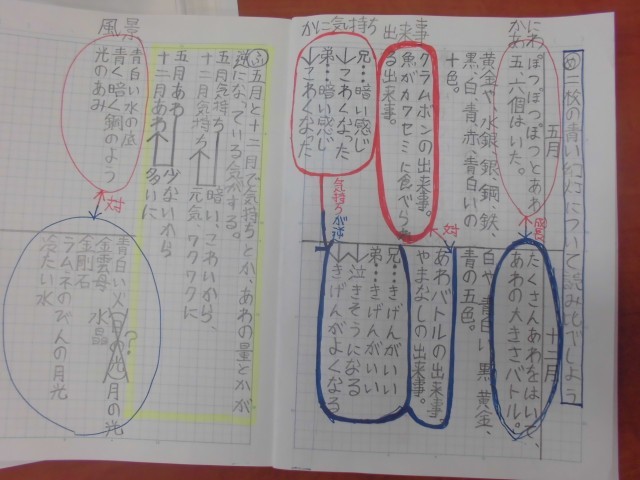 め 二枚の青い幻灯について読み比べしよう
五月
十二月
かにわ
かあ
ぽつぽつぽつとあわ
五、六個はいた。
たくさんあわをはいて、
あわの大きさバトル。
黄金や、水銀、銀、銅、鉄、
黒、白、青、赤、青白いの
十色。
白や、青白い、黒、黄金、
青の五色。
出来事
クラムボンの出来事。
魚がカワセミに食べられ
る出来事。
対
あわバトルの出来事。
やまなしの出来事。
かに気持ち
兄…暗い感じ
↓こわくなった
弟…暗い感じ
↓こわくなった
気持ちが逆
兄…きげんがいい
↓泣きそうになる
弟…きげんがいい
↓きげんがよくなる
ふ 五月と十二月で気持ちとか、あわの量とかが
逆になっている気がする。
五月気持ち 暗い、こわいから、
十二月気持ち 元気、ワクワクに
五月あわ 少ないから
十二月あわ 多いに
風景
青白い水の底
青く暗く鋼のよう
光のあみ
対
青白い火
日の光 月の光
?
金雲母 水晶
金剛石
ラムネのびんの月光
冷たい水